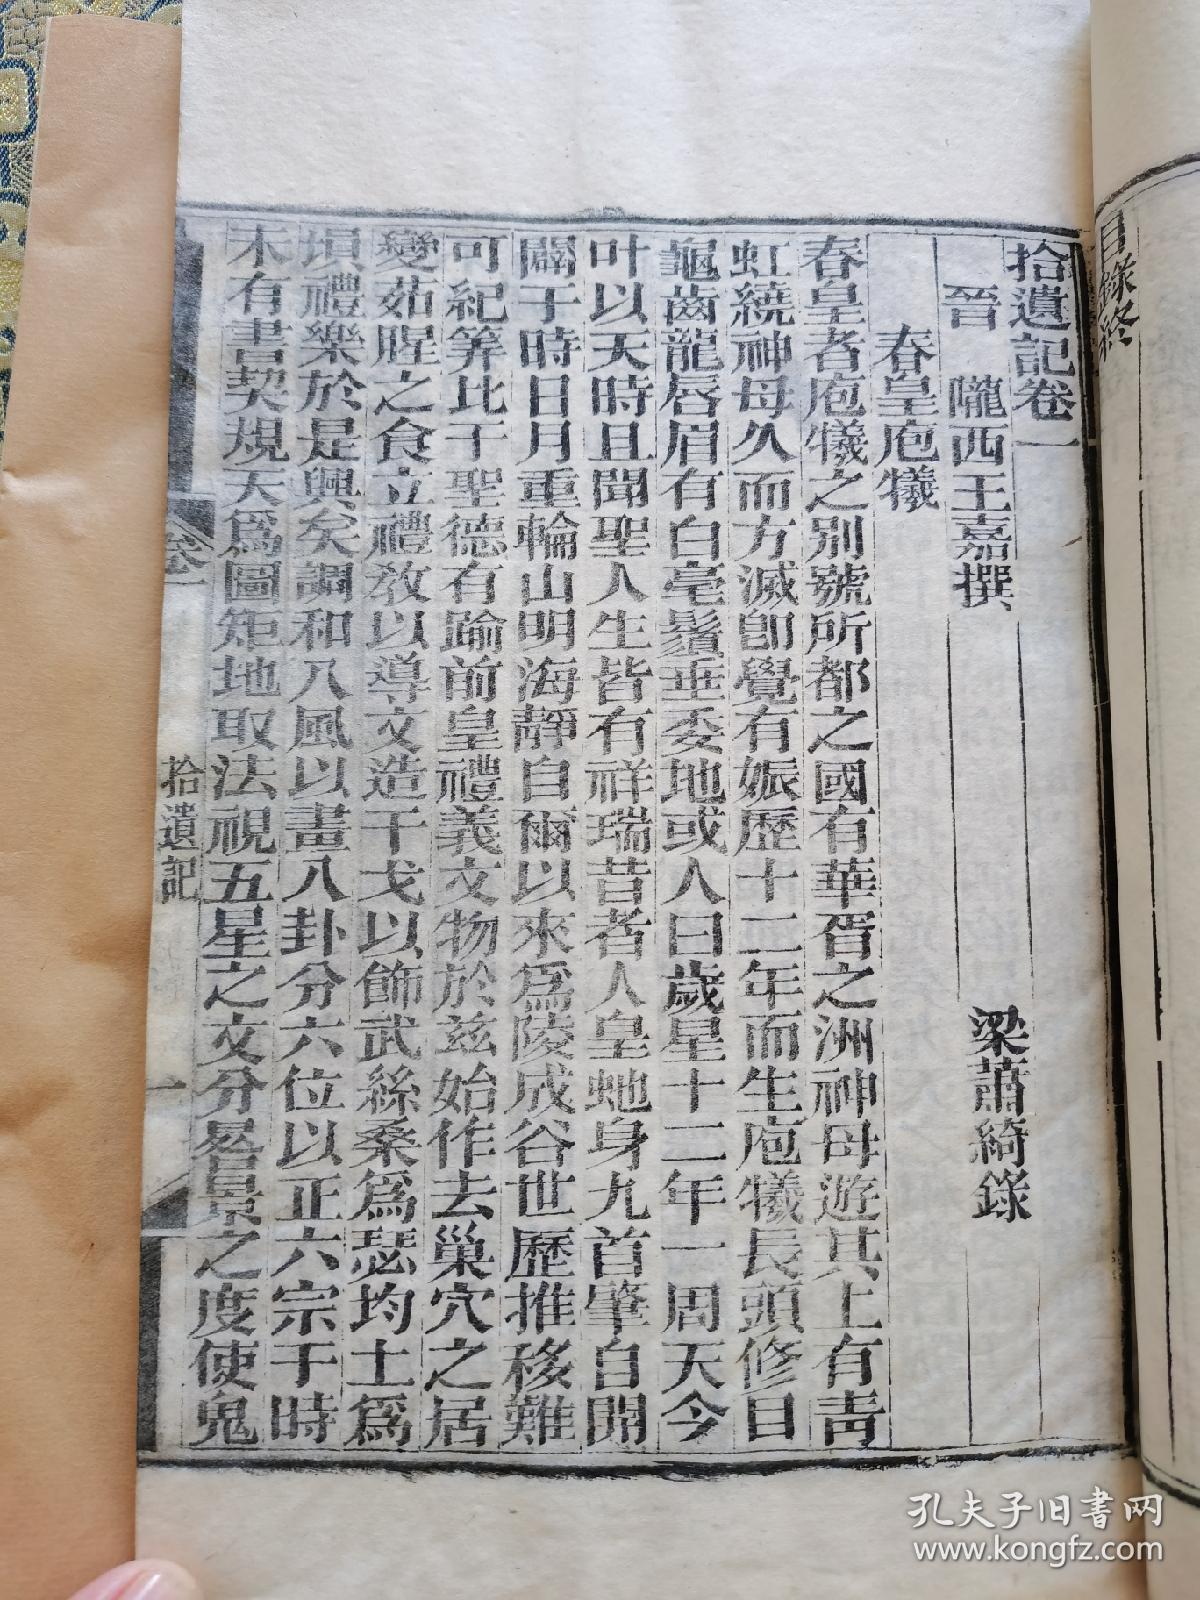 目錄終
拾遺記卷一
晉　隴西王嘉撰　梁蕭綺錄
春皇庖犧
春皇者庖犧之別號所都之國有華胥之洲神母遊其上有靑
虹繞神母久而方滅卽覺有娠歷十二年而生庖犧長頭修目
龜齒龍唇眉有白毫鬚垂委地或人曰歲星十二年一周天今
叶以天時且聞聖人生皆有祥瑞昔者人皇虵身九首肇自開
闢于時日月重輪山明海靜自爾以來爲陵成谷世歷推移難
可紀筭比于聖德有踰前皇禮義文物於兹始作去巢穴之居
變茹腥之食立禮敎以導文造干戈以飾武絲桑爲瑟均土爲
塤禮樂於是興矣調和八風以畫八卦分六位以正六宗于時
未有書契規天爲圖矩地取法視五星之文分晷景之度使鬼
卷一
拾遺記
一
孔夫子旧书网
www.kongfz.com